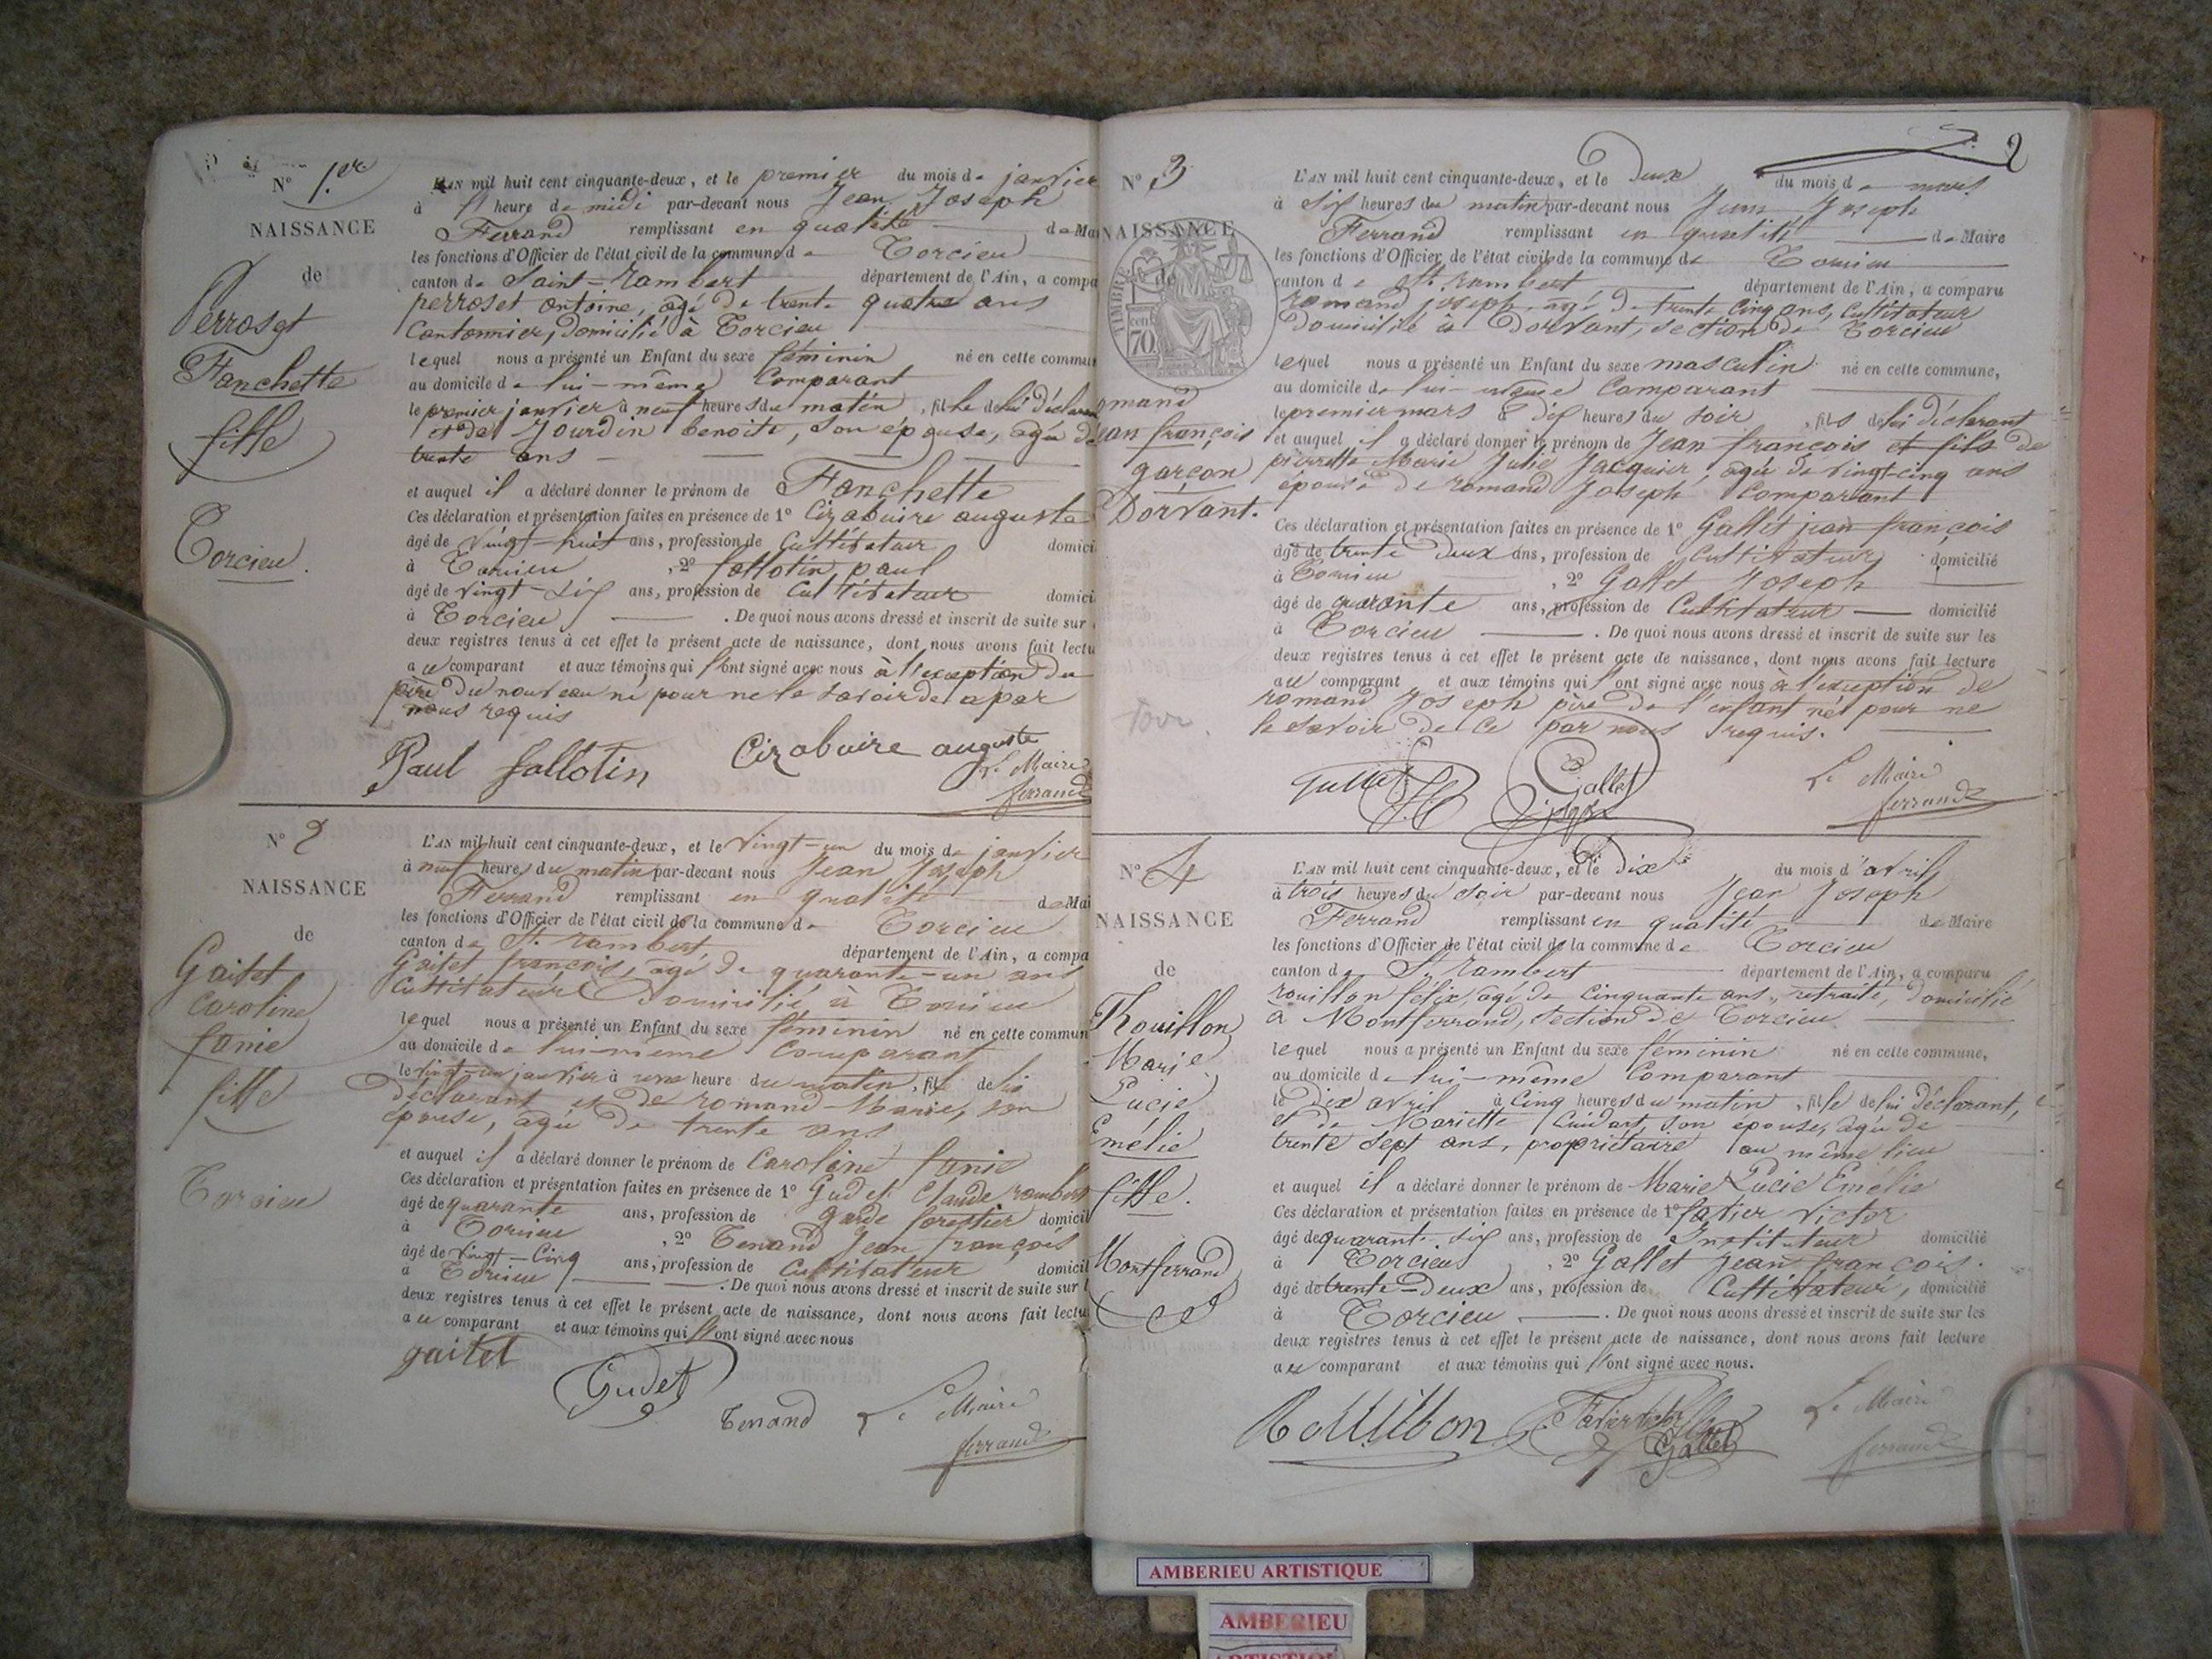 Nº 1.er
NAISSANCE
de
Perroset
Fanchette
fille
Torcieu.
L'AN mil huit cent cinquante-deux, et le premier du mois de janvier
à heure de midi par-devant nous Jean Joseph
Ferrand remplissant en qualité de Mai
les fonctions d'Officier de l'état civil de la commune de Torcieu
canton de Saint-Rambert département de l'Ain, a compa
perroset antoine, agé de trente quatre ans
Cantonnier, domicilié à Torcieu
lequel nous a présenté un Enfant du sexe féminin né en cette commun
au domicile de lui-même Comparant
le premier janvier à neuf heures du matin, fille de lui déclarant
et de Jourdin benoite, son épouse, agée de
trente ans
et auquel il a déclaré donner le prénom de Fanchette
Ces déclaration et présentation faites en présence de 1º Cizabuire auguste
âgé de vingt-huit ans, profession de Cultivateur domici
à Torcieu, 2º fallotin paul
âgé de vingt-six ans, profession de Cultivateur domici
à Torcieu . De quoi nous avons dressé et inscrit de suite sur
deux registres tenus à cet effet le présent acte de naissance, dont nous avons fait lectu
au comparant et aux témoins qui l'ont signé avec nous à l'exception du
père du nouveau né pour ne le savoir de
nous requis
Paul fallotin Cizabuire auguste
Le Maire
ferrand
Nº 2
NAISSANCE
de
Gaitet
Caroline
fanie
fille
Torcieu
L'AN mil huit cent cinquante-deux, et le vingt-un du mois de janvier
à neuf heures du matin par-devant nous Jean Joseph
Ferrand remplissant en qualité de Mai
les fonctions d'Officier de l'état civil de la commune de Torcieu
canton de St. Rambert département de l'Ain, a compa
Gaitet françois, agé de quarante-un ans
Cultivateur Domicilié à Torcieu
lequel nous a présenté un Enfant du sexe féminin né en cette commun
au domicile de lui-même Comparant
le vingt-un janvier à une heure du matin, fille de lui
déclarant et de romand Marie, son
épouse, agée de trente ans
et auquel il a déclaré donner le prénom de Caroline fanie
Ces déclaration et présentation faites en présence de 1º Gudet Claude rambert
âgé de quarante ans, profession de garde forestier domicil
à Torcieu, 2º Tenand Jean françois
âgé de vingt-Cinq ans, profession de Cultivateur domicil
à Torcieu . De quoi nous avons dressé et inscrit de suite sur l
deux registres tenus à cet effet le présent acte de naissance, dont nous avons fait lectu
au comparant et aux témoins qui l'ont signé avec nous
gaitet
Gudet
Tenand Le Maire
ferrand
2
Nº 3
NAISSANCE
de
TIMBRE
70
omand
ean françois
garçon
Dorvant.
L'AN mil huit cent cinquante-deux, et le Deux du mois de mars
à six heures du matin par-devant nous Jean Joseph
Ferrand remplissant en qualité de Maire
les fonctions d'Officier de l'état civil de la commune de Torcieu
canton de St. Rambert département de l'Ain, a comparu
romand joseph, agé de trente Cinq ans, Cultivateur
domicilié à Dorvant, section de Torcieu
lequel nous a présenté un Enfant du sexe masculin né en cette commune,
au domicile de lui-même Comparant
le premier mars à dix heures du soir, fils de lui déclarant
et auquel il a déclaré donner le prénom de Jean françois et fils de
pierrette Marie Julie Jacquier, agée de vingt-cinq ans
épouse de romand Joseph Comparant
Ces déclaration et présentation faites en présence de 1º Gallet jean françois
âgé de trente deux ans, profession de Cultivateur domicilié
à Torcieu, 2º Gallet Joseph
âgé de quarante ans, profession de Cultivateur domicilié
à Torcieu . De quoi nous avons dressé et inscrit de suite sur les
deux registres tenus à cet effet le présent acte de naissance, dont nous avons fait lecture
au comparant et aux témoins qui l'ont signé avec nous à l'exception de
romand Joseph père de l'enfant né pour ne
le savoir de ce par nous requis.
Gallet
Le Maire
ferrand
Nº 4
NAISSANCE
de
Rouillon
Marie
Lucie
Emélie
fille.
Montferrand
L'AN mil huit cent cinquante-deux, et le Dix du mois d'avril
à trois heures du soir par-devant nous Jean Joseph
Ferrand remplissant en qualité de Maire
les fonctions d'Officier de l'état civil de la commune de Torcieu
canton de St. Rambert département de l'Ain, a comparu
rouillon félix, agé de Cinquante ans, retraité, domicilié
à Montferrand, section de Torcieu
lequel nous a présenté un Enfant du sexe féminin né en cette commune,
au domicile de lui-même Comparant
le Dix avril à Cinq heures du matin, fille de lui déclarant,
et de Mariette son épouse, agée de
trente sept ans, propriétaire au même lieu
et auquel il a déclaré donner le prénom de Marie Lucie Emélie
Ces déclaration et présentation faites en présence de 1º favier victor
âgé de quarante six ans, profession de Instituteur domicilié
à Torcieu, 2º Gallet jean françois.
âgé de trente-Deux ans, profession de Cultivateur, domicilié
à Torcieu . De quoi nous avons dressé et inscrit de suite sur les
deux registres tenus à cet effet le présent acte de naissance, dont nous avons fait lecture
au comparant et aux témoins qui l'ont signé avec nous.
Rouillon
Gallet
Le Maire
ferrand
AMBERIEU ARTISTIQUE
AMBERIEU
ARTISTIQUE